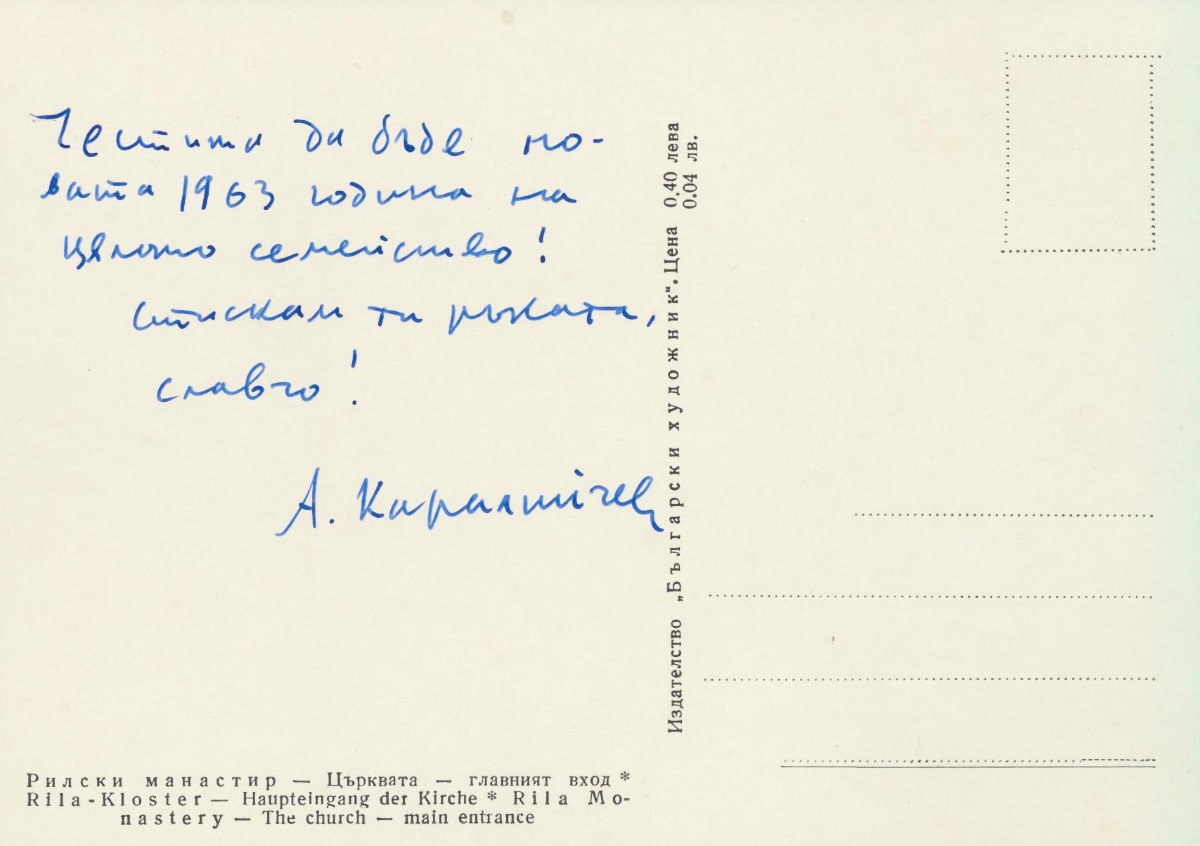 Честита да бъде но-
вата 1963 година на
цялото семейство!
Стискам ти ръката,
Славчо!
А. Каралийчев
Издателство „Български художник“. Цена 0,40 лева
0.04 лв.
Рилски манастир — Църквата — главният вход *
Rila-Kloster — Haupteingang der Kirche * Rila Mo-
nastery — The church — main entrance